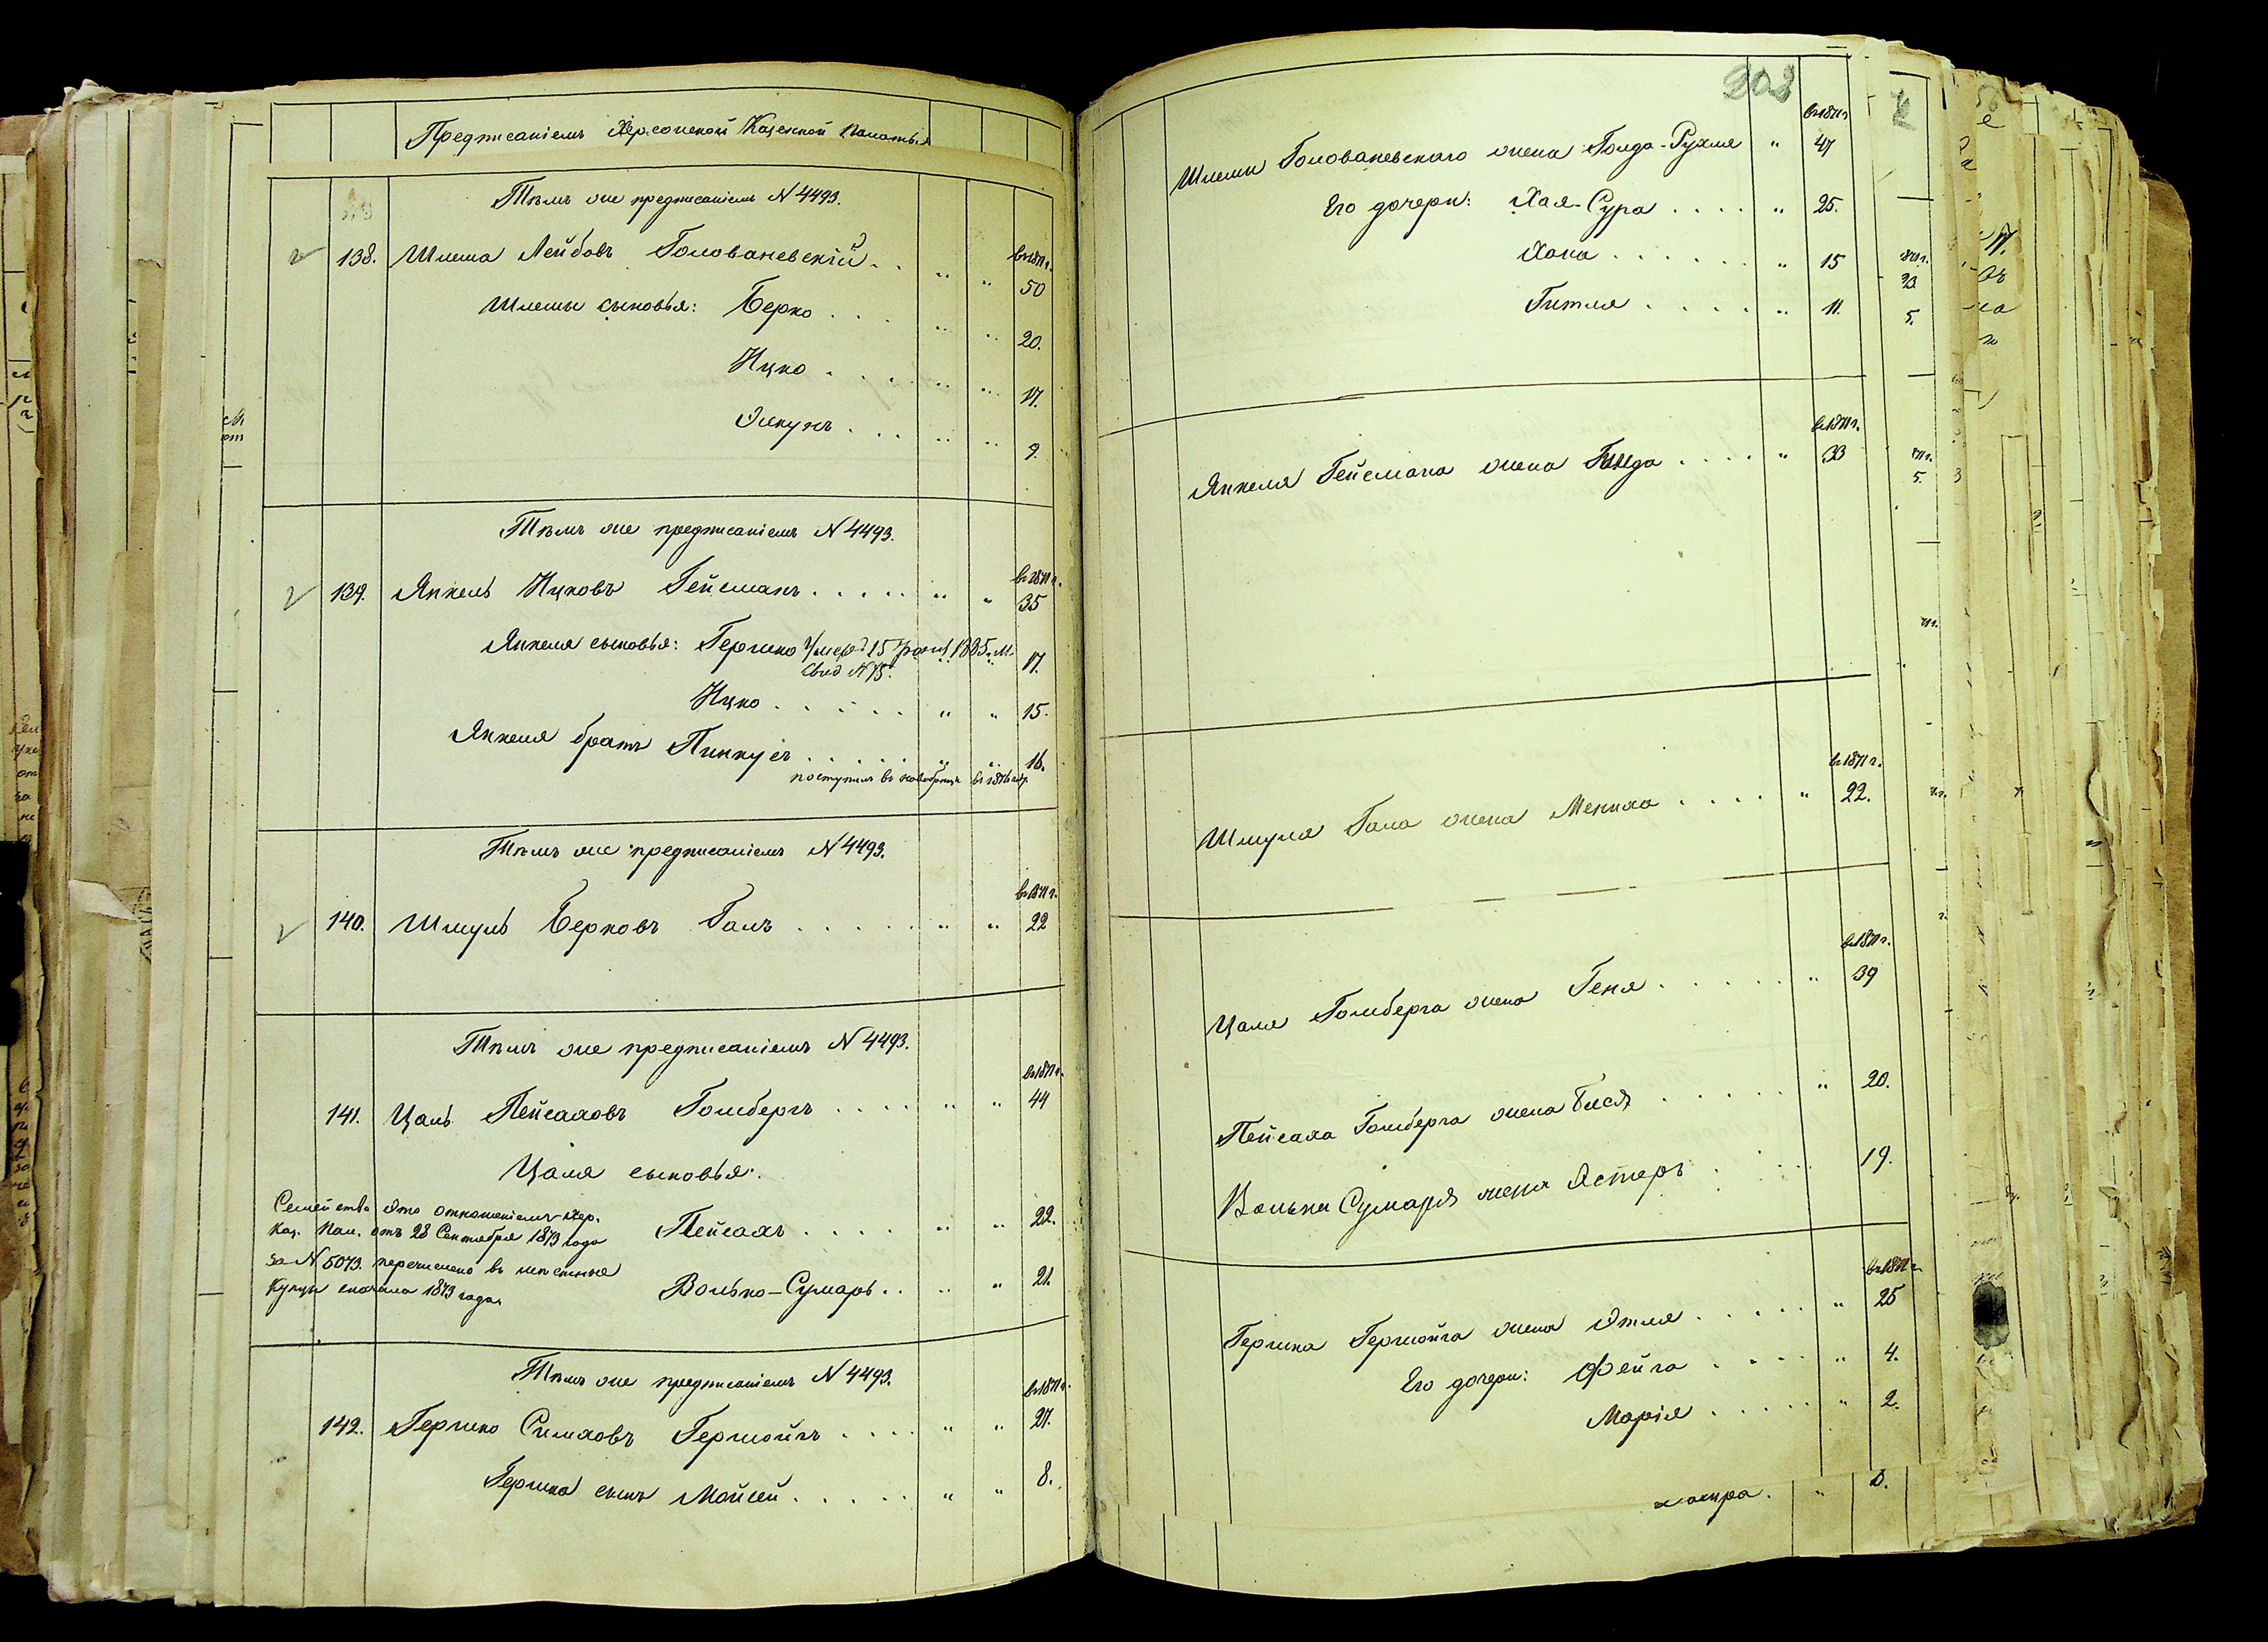 Предписаніемъ Херсонской Казенной Палаты
Тѣмъ же предписаніемъ N 4493.
въ 1871 г.
138. Шлема Лейбовъ Голованевскій . . " " 50
Шлемы сыновья: Берко . . . " " 20.
Ицко . . . . " " 17.
. . . " " 9.
Тѣмъ же предписаніемъ N 4493.
въ 1871 г.
139. Янкель Ицковъ Гейсманъ . . . . . " " 35
Янкеля сыновья: Гершко Умеръ 15 1885 г. М. 17.
Свид N 75.
Ицко . . . . . " " 15.
Янкеля братъ Пинкусъ . . . . . " " 16.
поступилъ въ новобранцы въ 1876 году
Тѣмъ же предписаніемъ N 4493.
въ 1871 г.
140. Шмуль Берковъ Галъ . . . . . " " 22
Тѣмъ же предписаніемъ N 4493.
въ 1871 г.
141. Цаль Пейсаховъ Гольбергъ . . . . " " 44
Цаля сыновья:
Семейство это отношеніемъ Хер.
Каз. Пал. отъ 28 Сентября 1873 года
за N 5073. перечислено въ мѣстные
Купцы сначала 1873 года.
Пейсахъ . . . . " " 22.
Волько-Сумаръ . . " " 21.
Тѣмъ же предписаніемъ N 4493.
въ 1871 г.
142. Гершко Симховъ Гершойгъ . . . . " " 27.
Гершка сынъ Мойсей . . . . . " " 8.
203
въ 1871 г.
Шлемы Голованевскаго жена Голда-Рухля " 47
Его дочери: Хая-Сура . . . . " 25.
Хана . . . . . . " 15
Гитля . . . . . " 11.
въ 1871 г.
Янкеля Гейсмана жена . . . . " 33
въ 1871 г.
Шмуля Гала жена Мениха . . . . " 22.
въ 1871 г.
Цаля Гольберга жена Геня . . . . . " 39
Пейсаха Гольберга жена Бася . . . . . " 20.
Волька Сумаря жена Эстеръ . . . 19.
въ 1871 г.
Гершка Гершойга жена Этля . . . . . " 25
Его дочери: Фейга . . . . " 4.
Марія . . . . . " 2.